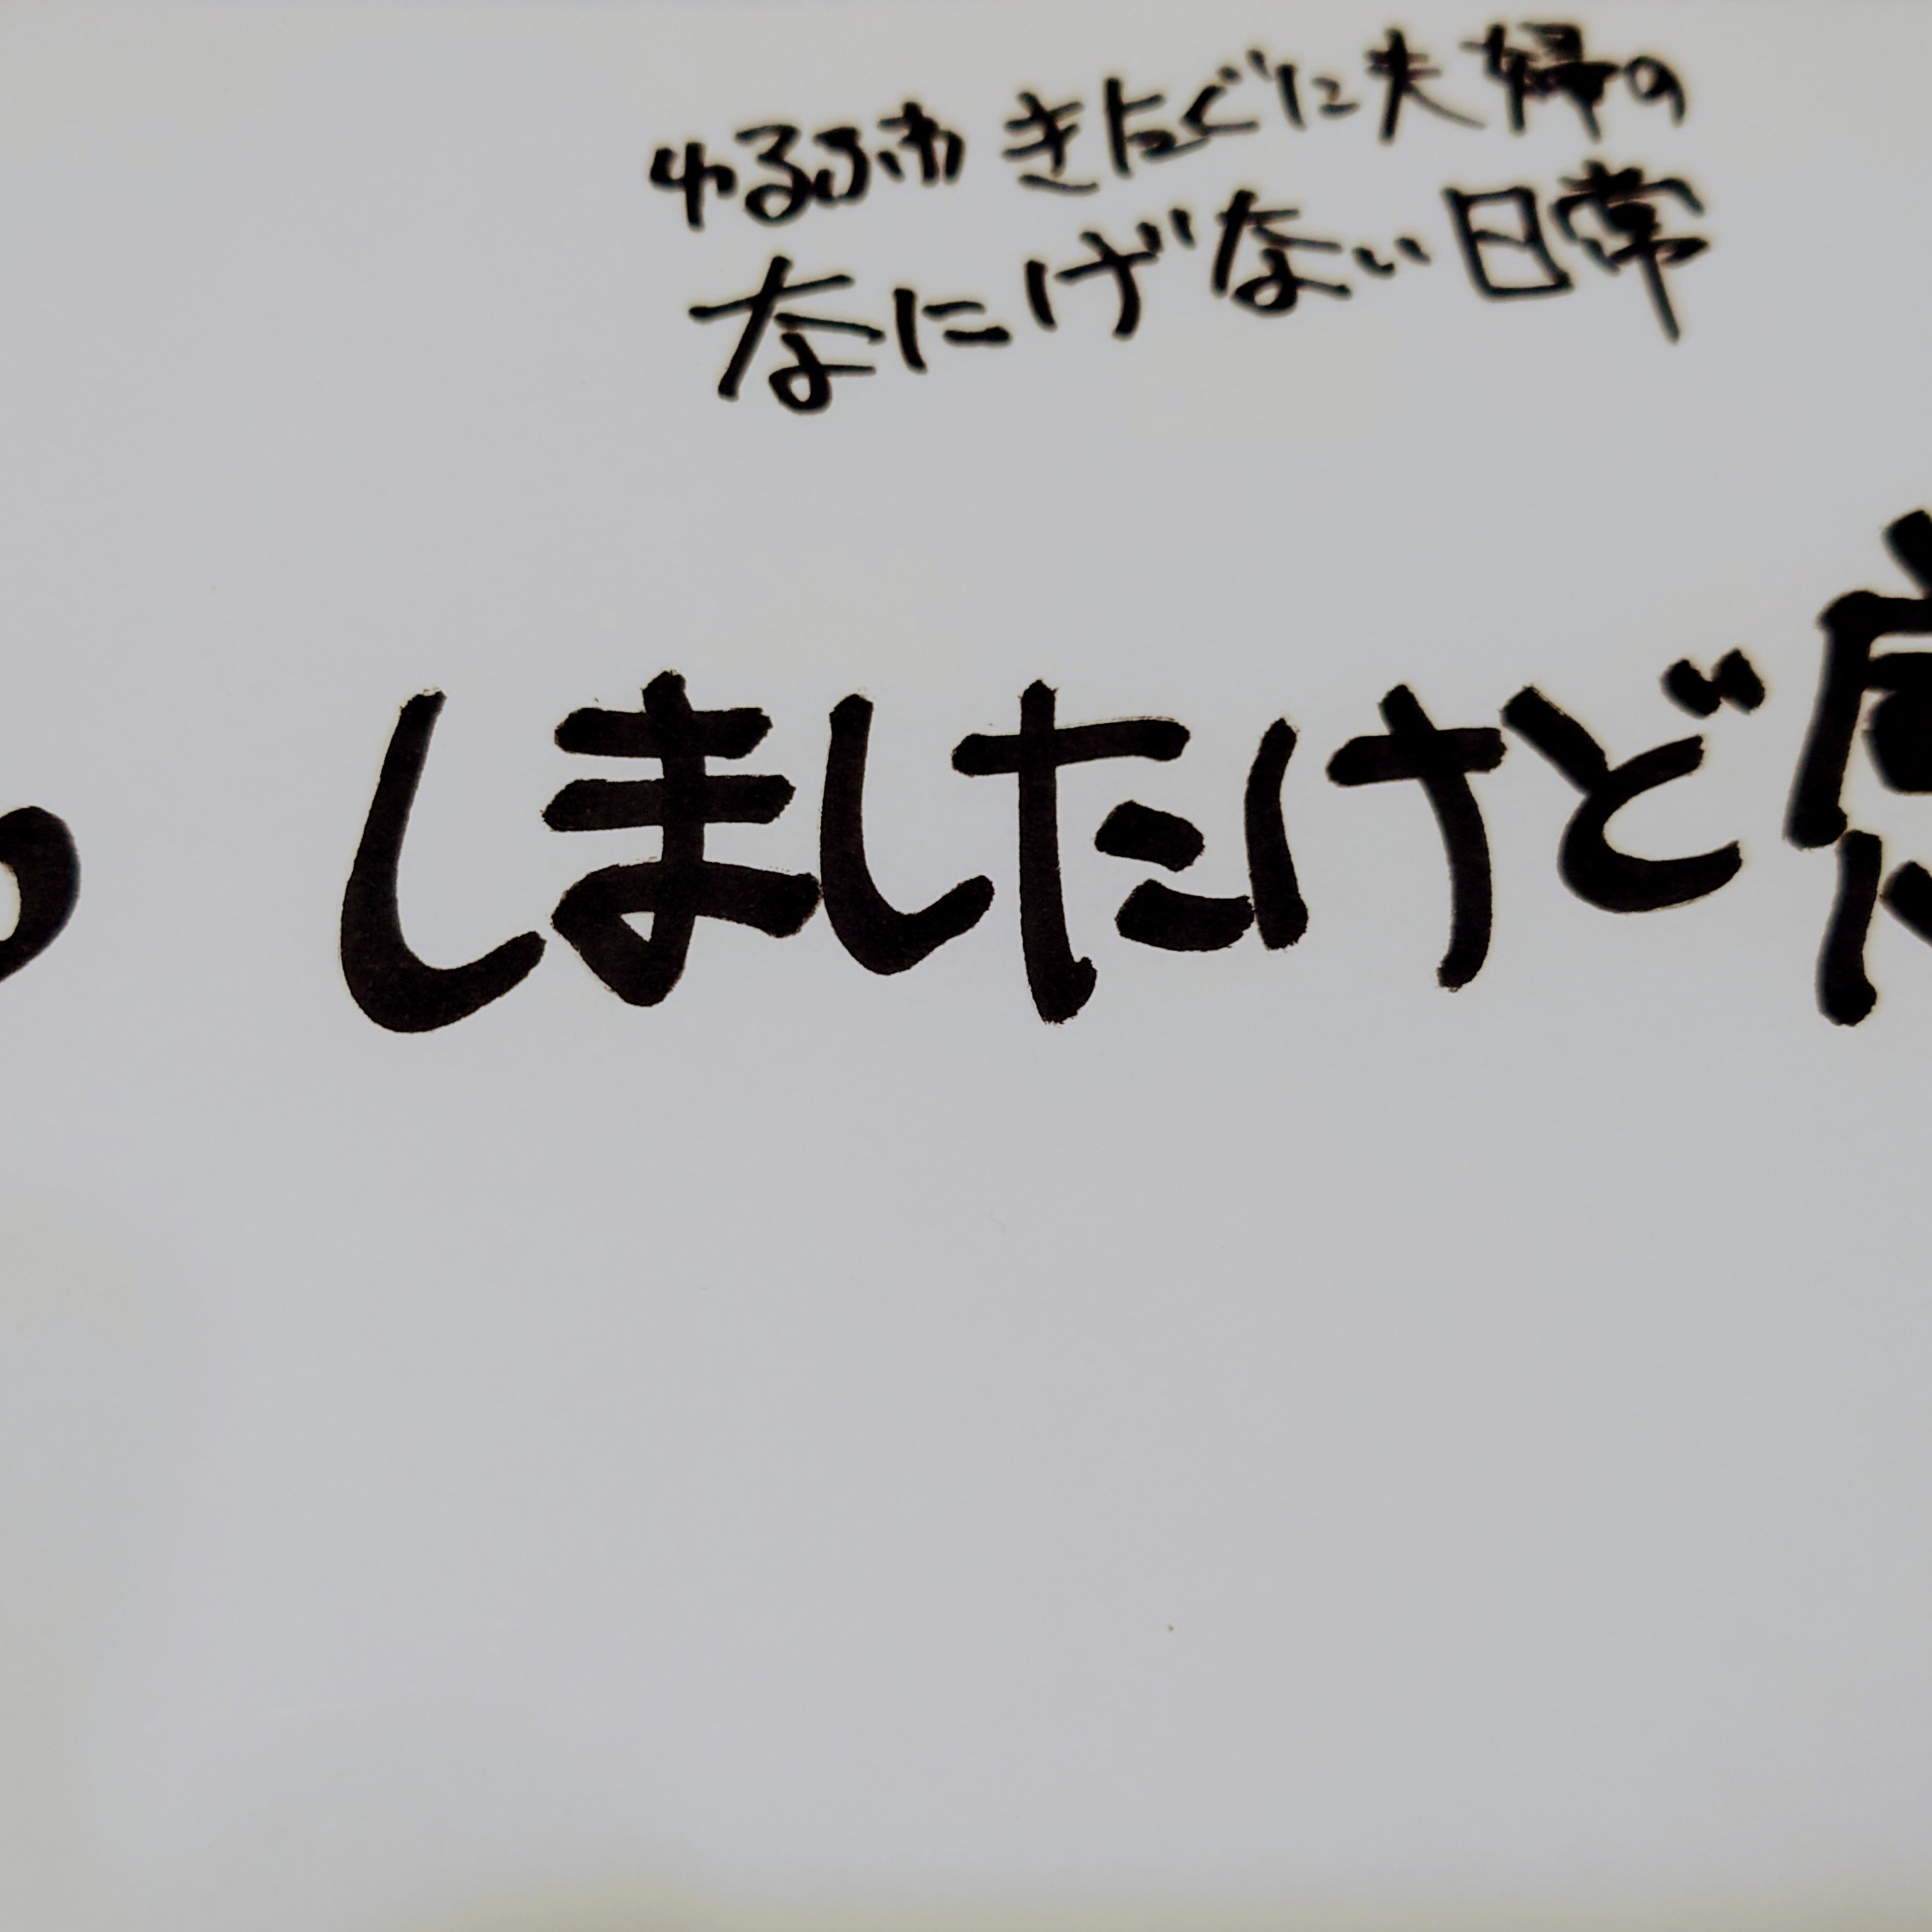 ゆるふわ きたぐに夫婦の
なにげない日常
しましたけど